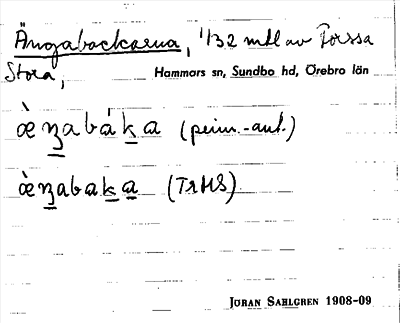 Ängabackarna, 1/32 mtl av Torssa
Stora,
Hammars sn, Sundbo hd, Örebro län
(prim.-ant.)
(TrHS)
JÖRAN SAHLGREN 1908-09